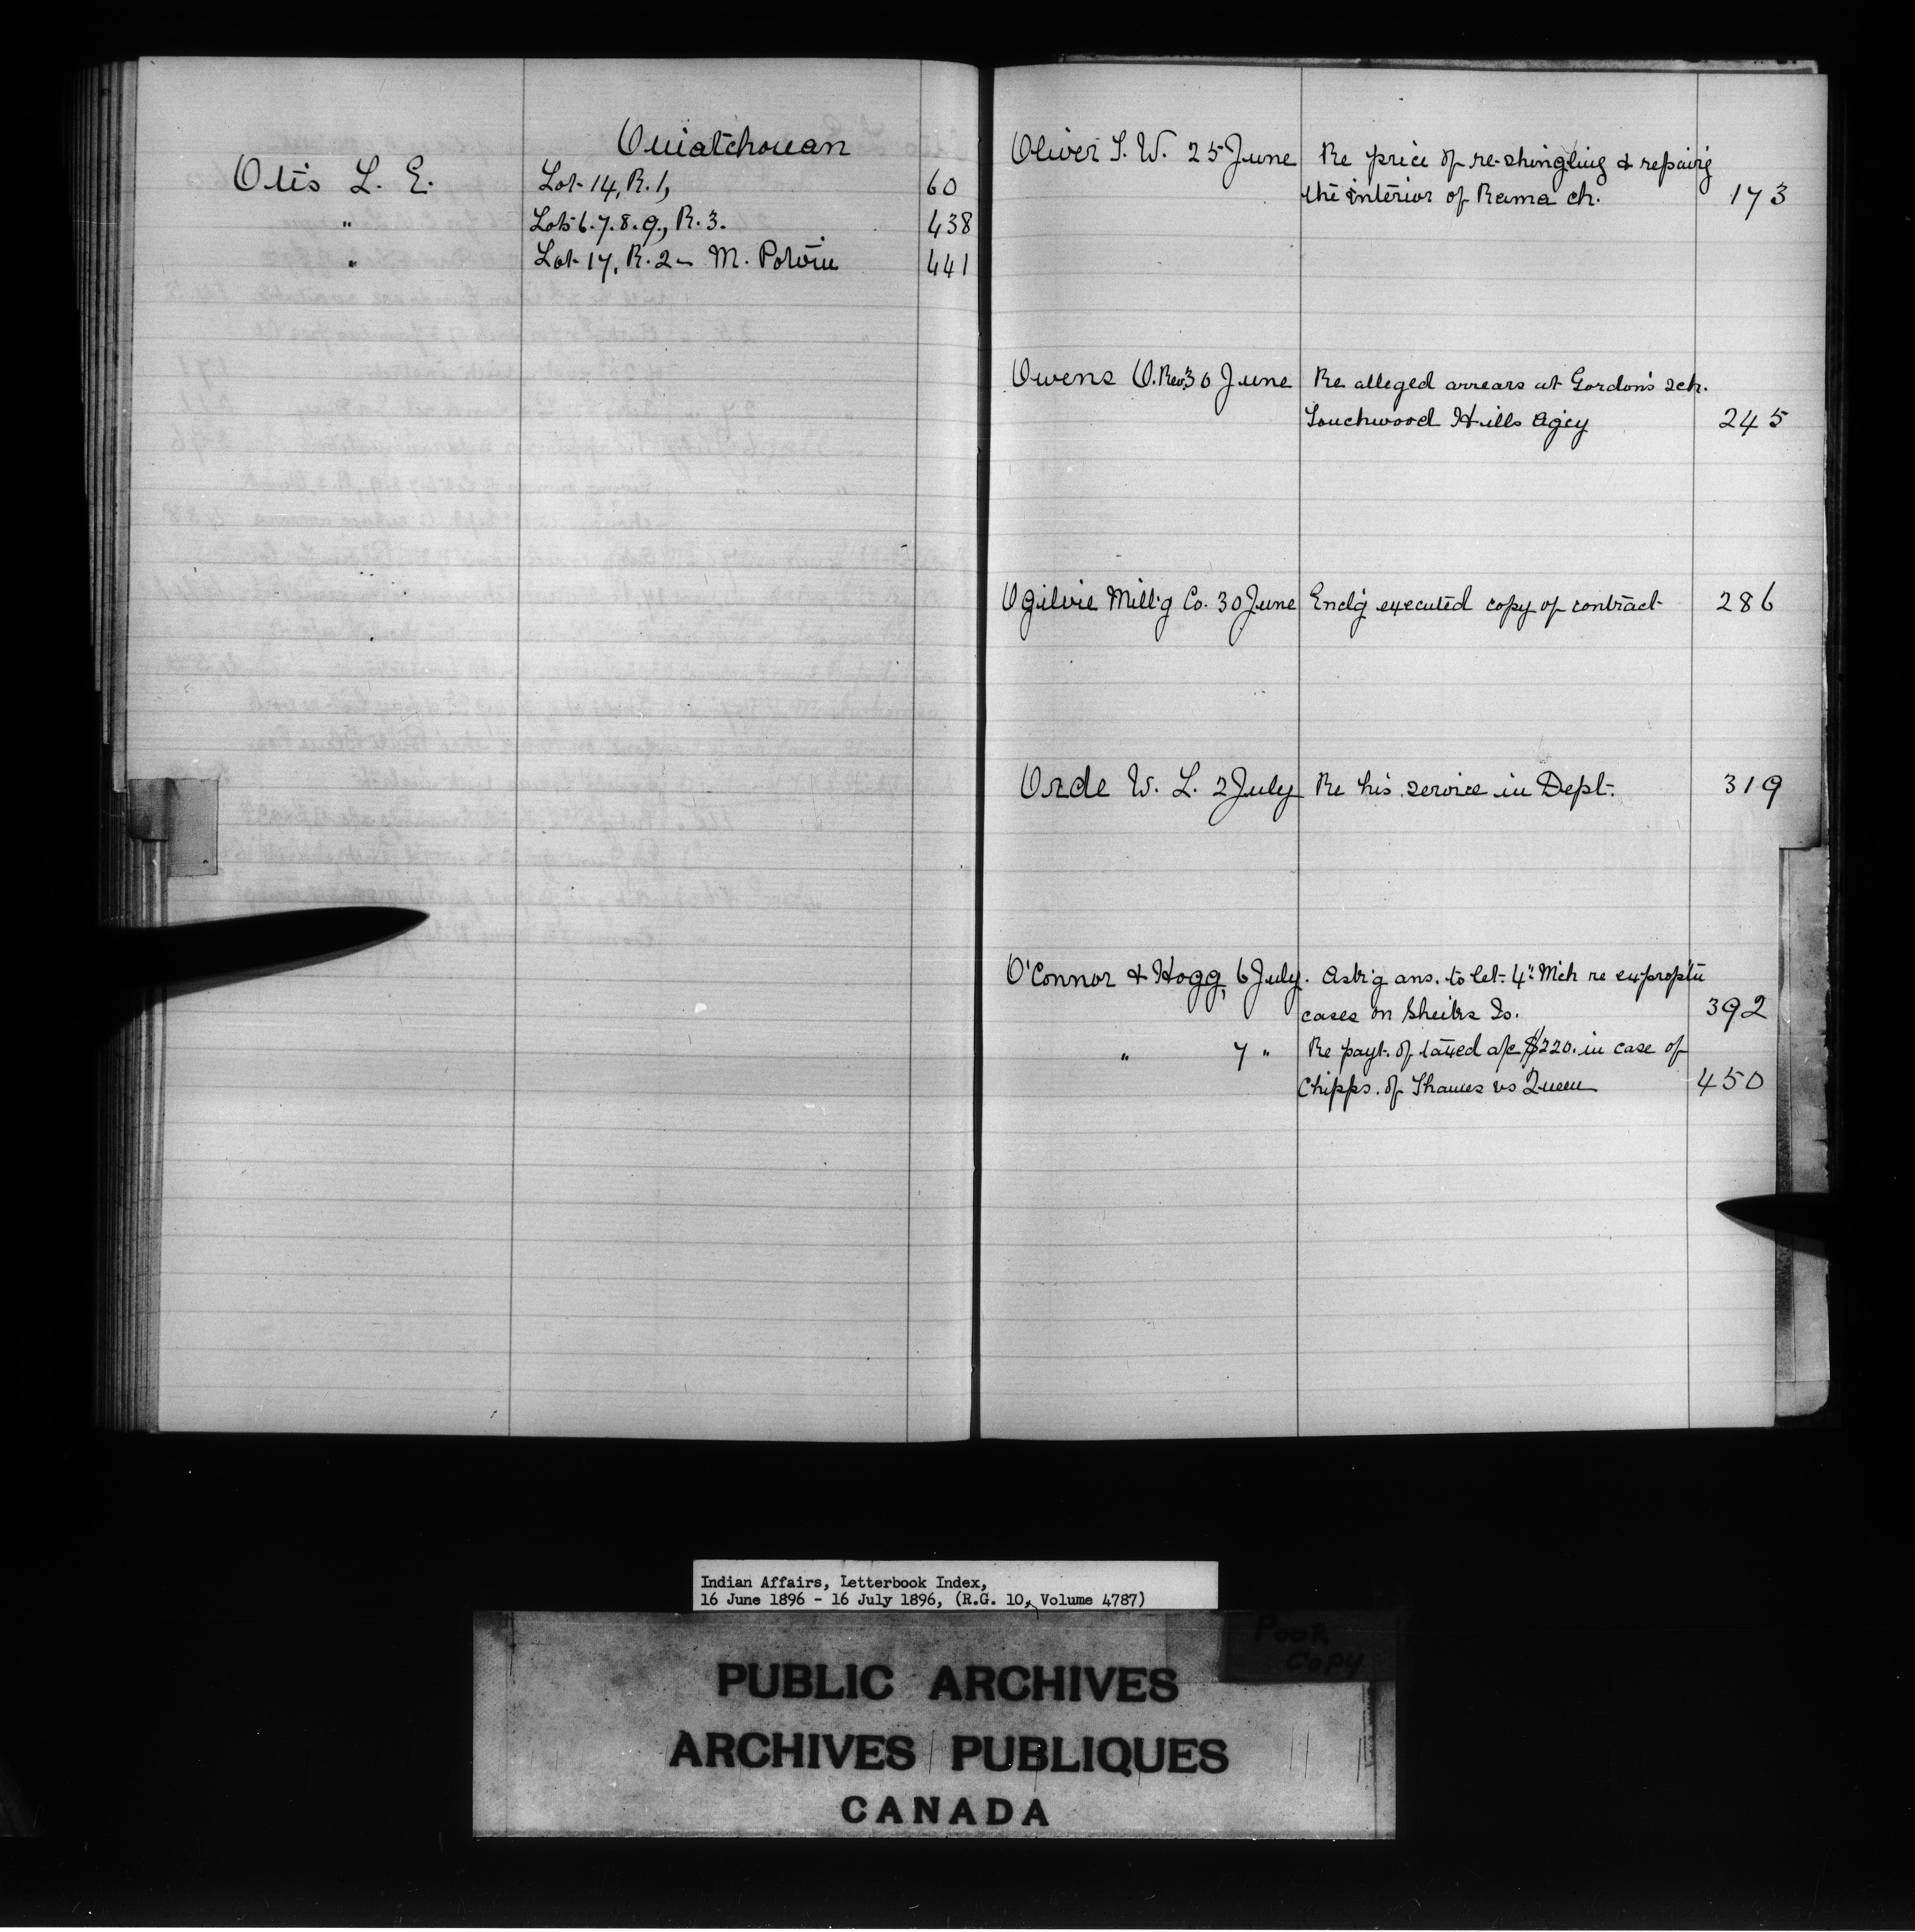 Ouiatchouan
Otis L. E. Lot 14, R. 1, 60
" Lots 6. 7. 8. 9., R. 3. 438
" Lot 17, R. 2 - M. Potvin 441
Oliver S. W. 25 June Re price of re-shingling & repairg
the interior of Rama ch. 173
Owens O. Rev. 30 June Re alleged arrears at Gordon's sch.
Touchwood Hills Agcy 245
Ogilvie Mill'g Co. 30 June Encl'g executed copy of contract 286
Orde W. L. 2 July Re his service in Dept. 319
O'Connor & Hogg, 6 July. Ask'g ans. to let. 4" Mch re
cases on Is. 392
" 7 " Re payt. of taxed a/c $220. in case of
Chipps. of Thames vs Queen 450
Indian Affairs, Letterbook Index,
16 June 1896 - 16 July 1896, (R.G. 10, Volume 4787)
POOR
COPY
PUBLIC ARCHIVES
ARCHIVES PUBLIQUES
CANADA